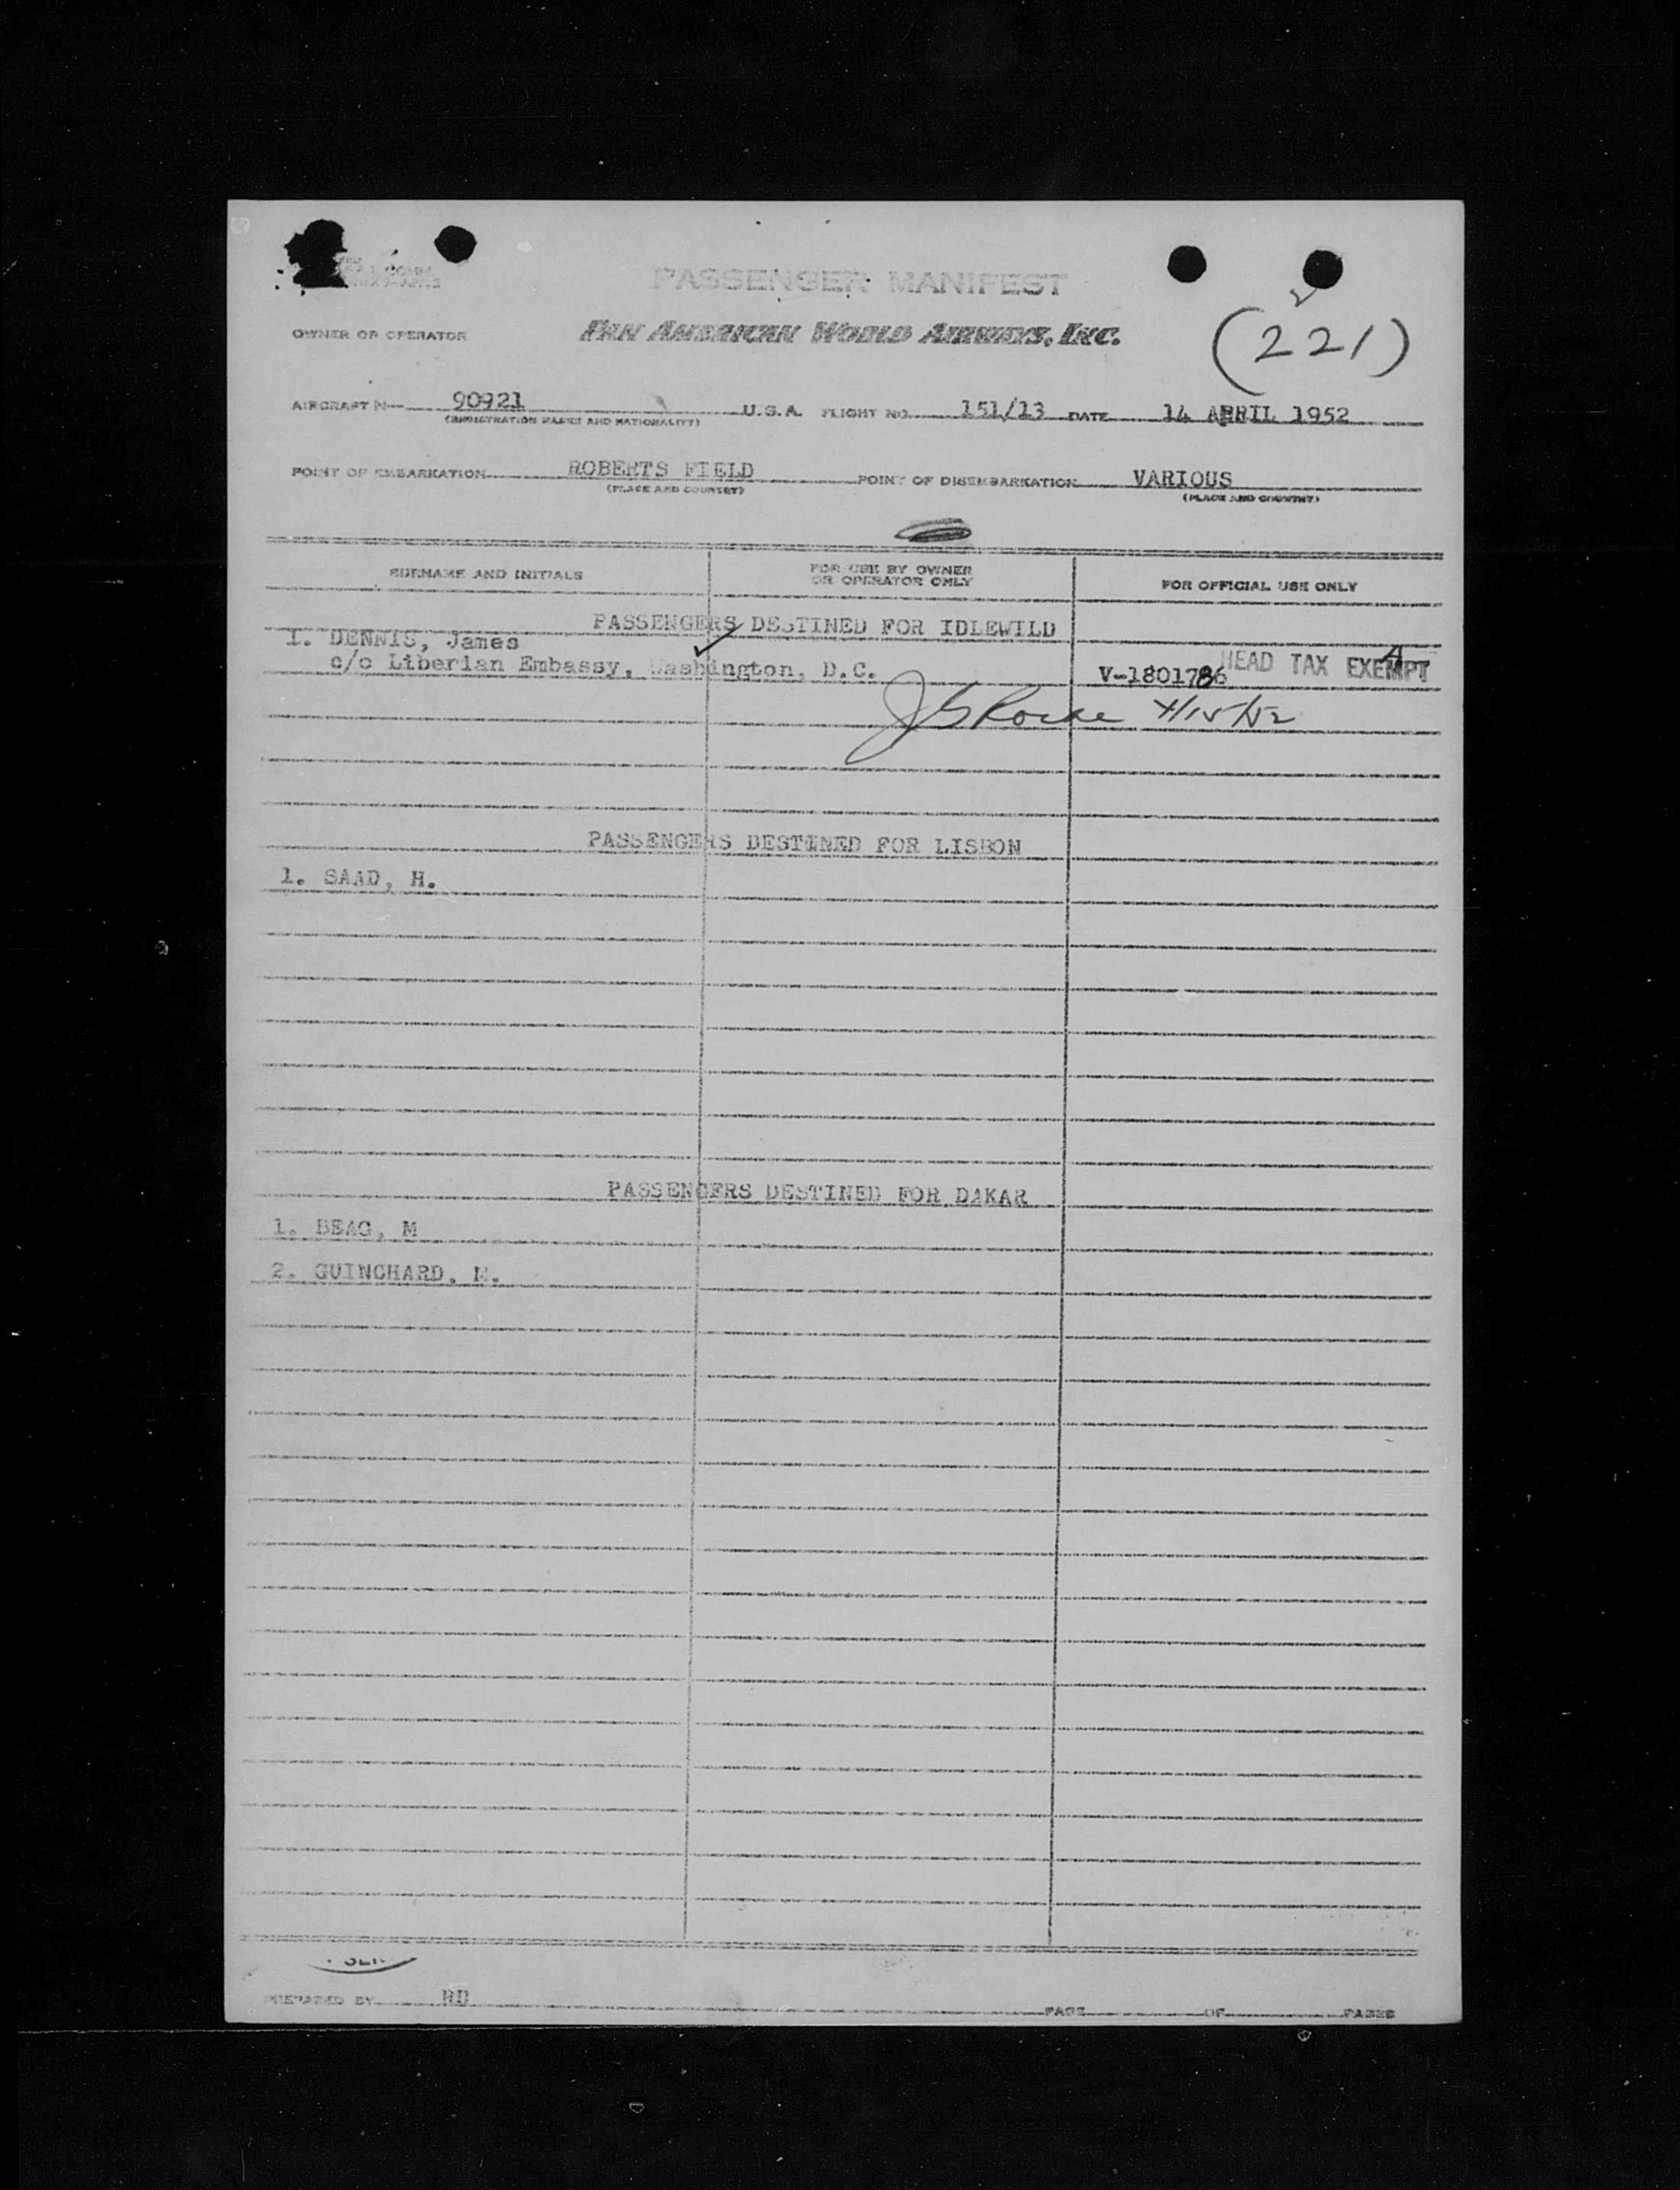 PASSENGER MANIFEST
OWNER OR OPERATOR PAN AMERICAN WORLD AIRWAYS, INC.
(221)
AIRCRAFT N— 90921 U.S.A. FLIGHT NO. 151/13 DATE 14 APRIL 1952
(REGISTRATION MARKS AND NATIONALITY)
POINT OF EMBARKATION ROBERTS FIELD POINT OF DISEMBARKATION VARIOUS
(PLACE AND COUNTRY) (PLACE AND COUNTRY)
SURNAME AND INITIALS FOR USE BY OWNER OR OPERATOR ONLY FOR OFFICIAL USE ONLY
PASSENGERS DESTINED FOR IDLEWILD
1. DENNIS, James
c/o Liberian Embassy, Washington, D.C. V-1801786 HEAD TAX EXEMPT
4/15/52
PASSENGERS DESTINED FOR LISBON
1. SAAD, H.
PASSENGERS DESTINED FOR DAKAR
1. BEAG, M
2. GUINCHARD, M.
PREPARED BY PAGE OF PAGES